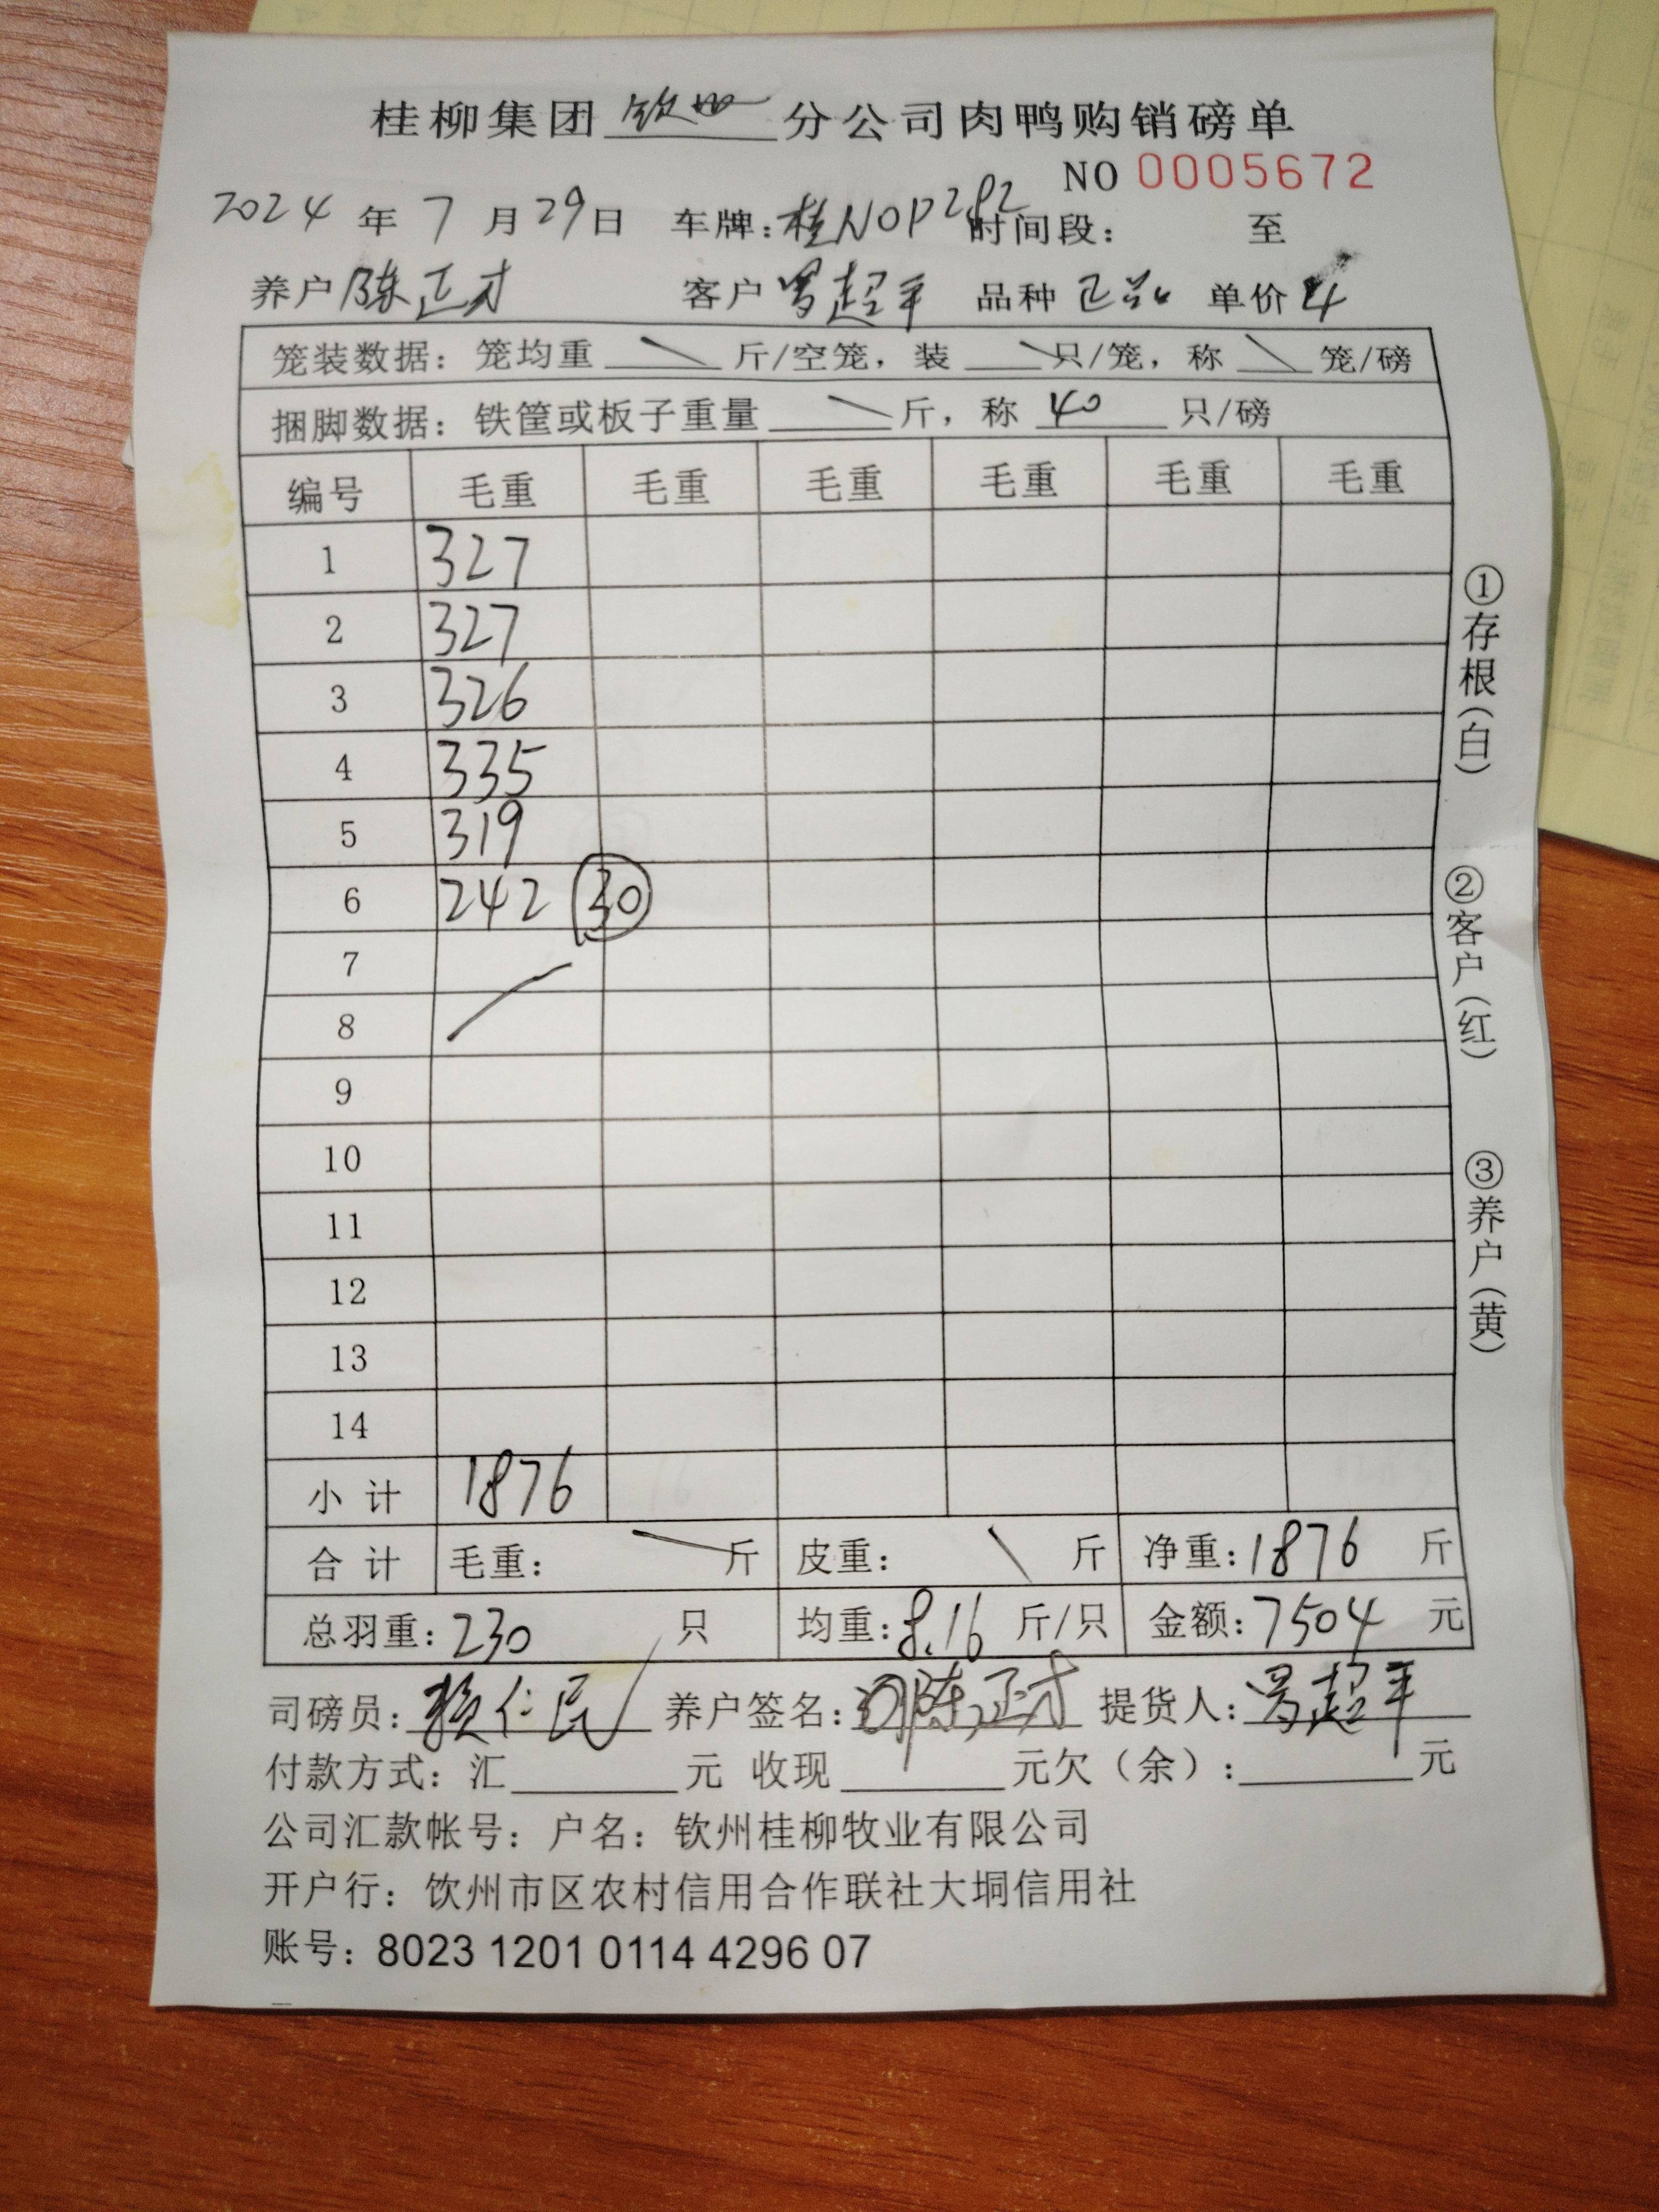 桂柳集团钦州分公司肉鸭购销磅单
NO 0005672
2024年7月29日 车牌:桂N0P282 时间段: 至
养户陈正才 客户罗超平 品种正品 单价4
笼装数据:笼均重 斤/空笼,装 只/笼,称 笼/磅
捆脚数据:铁筐或板子重量 斤,称 40 只/磅
编号 毛重 毛重 毛重 毛重 毛重 毛重
1 327
2 327
3 326
4 335
5 319
6 242 30
7
8
9
10
11
12
13
14
小计 1876
合计 毛重: 斤 皮重: 斤 净重:1876 斤
总羽重:230 只 均重:8.16 斤/只 金额:7504 元
司磅员:赖仁民 养户签名:陈正才 提货人:罗超平
付款方式:汇 元 收现 元欠(余): 元
公司汇款帐号:户名:钦州桂柳牧业有限公司
开户行:饮州市区农村信用合作联社大垌信用社
账号:8023 1201 0114 4296 07
①存根(白)
②客户(红)
③养户(黄)